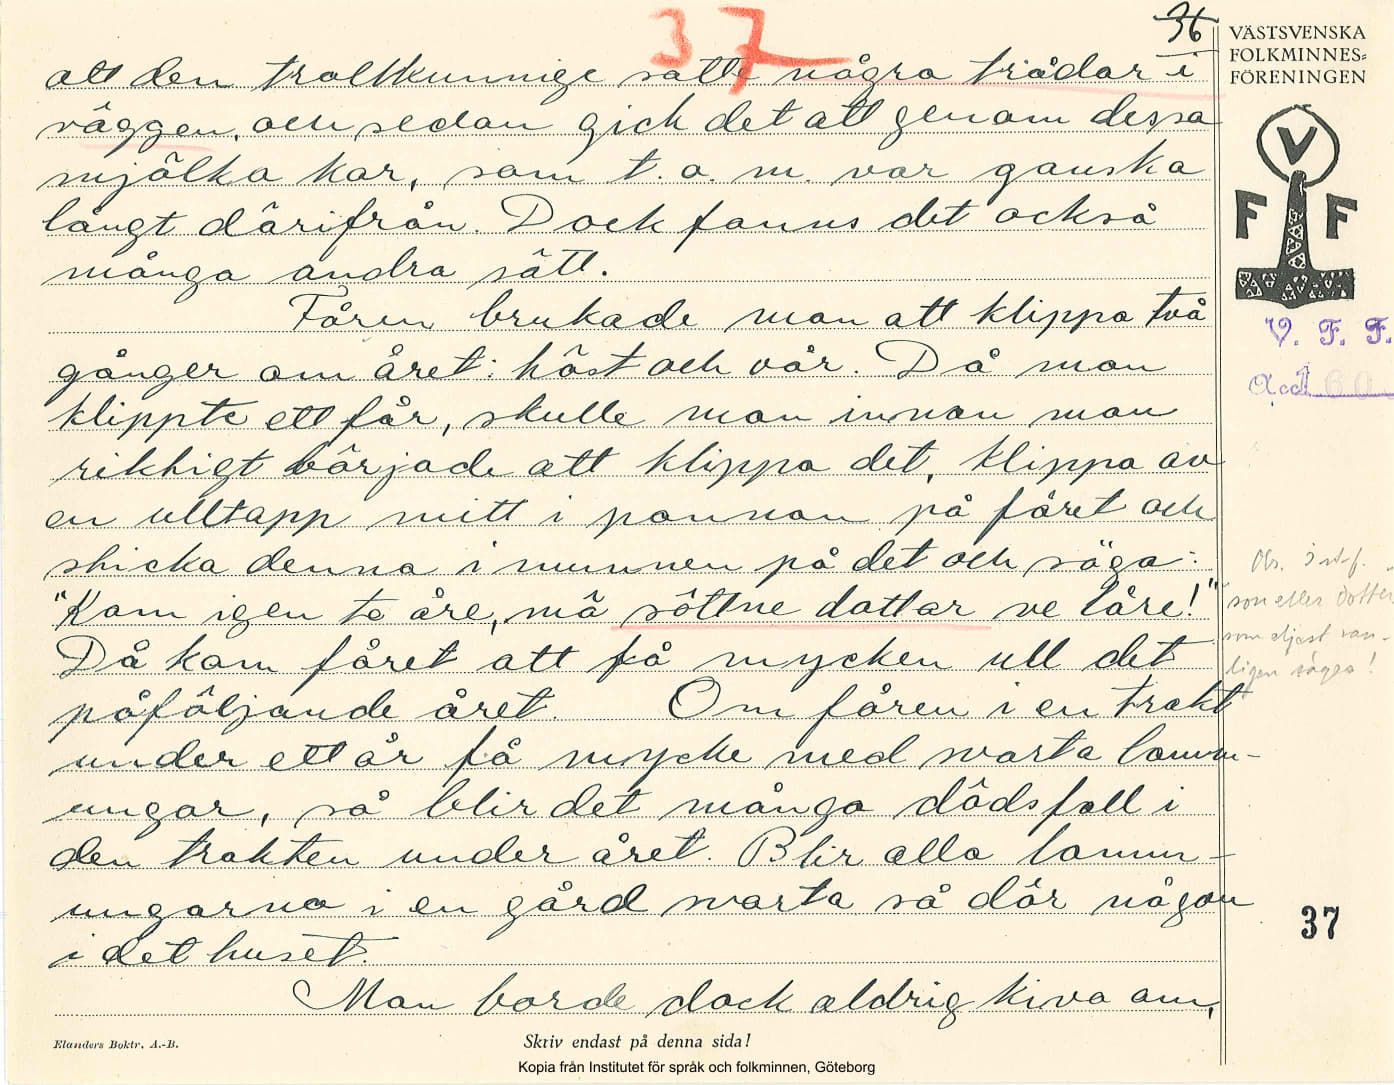 37
36
VÄSTSVENSKA
FOLKMINNES-
FÖRENINGEN
att den trollkunnige satte några trådar i
väggen, och sedan gick det att genom dessa
mjölka kor, som t. o. m. var ganska
långt därifrån. Dock fanns det också
många andra sätt.
V
F F
Fåren brukade man att klippa två
gånger om året: höst och vår. Då man
klippte ett får, skulle man innan man
rikkigt började att klippa det, klippa av
en ulltapp mitt i pannan på fåret och
sticka denna i munnen på det och säga:
"Kom igen te åre, mä söttne dottar ve låre!"
Då kom fåret att få mycken ull det
påföljande året. Om fåren i en trakt
under ett år få mycke med svarta lamm-
ungar, så blir det många dödsfall i
den trakten under året. Blir alla lamm-
ungarna i en gård svarta så dör någon
i det huset.
Man borde dock aldrig kiva om,
V. F. F.
Acc
son eller dotter,
som eljest van-
ligen säges!
37
Elanders Boktr. A.-B.
Skriv endast på denna sida!
Kopia från Institutet för språk och folkminnen, Göteborg